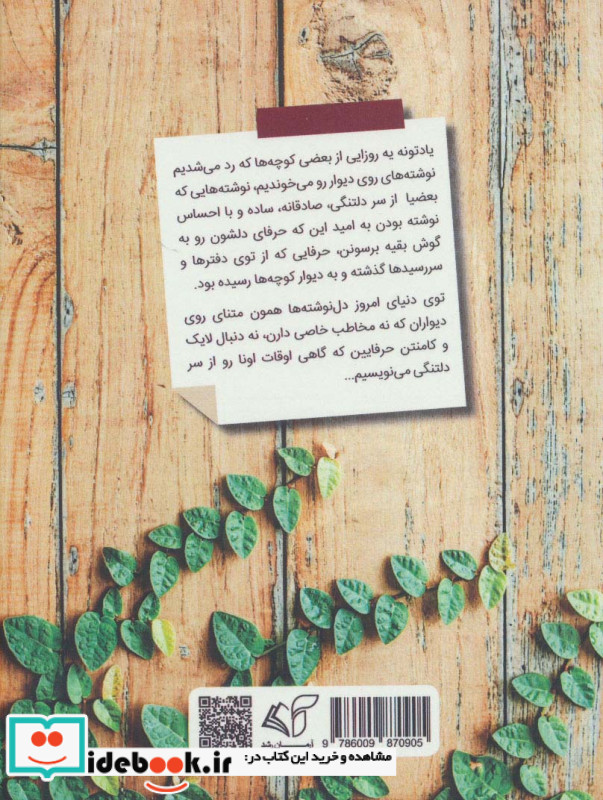 یادتونه یه روزایی از بعضی کوچه‌ها که رد می‌شدیم
نوشته‌های روی دیوار رو می‌خوندیم، نوشته‌هایی که
بعضیا از سر دلتنگی، صادقانه، ساده و با احساس
نوشته بودن به امید این که حرفای دلشون رو به
گوش بقیه برسونن، حرفایی که از توی دفترها و
سررسیدها گذشته و به دیوار کوچه‌ها رسیده بود.
توی دنیای امروز دل‌نوشته‌ها همون متنای روی
دیواران که نه مخاطب خاصی دارن، نه دنبال لایک
و کامنتن حرفایین که گاهی اوقات اونا رو از سر
دلتنگی می‌نویسیم...
آرمان رشد
9 786009 870905
مشاهده و خرید این کتاب در:
idebook.ir